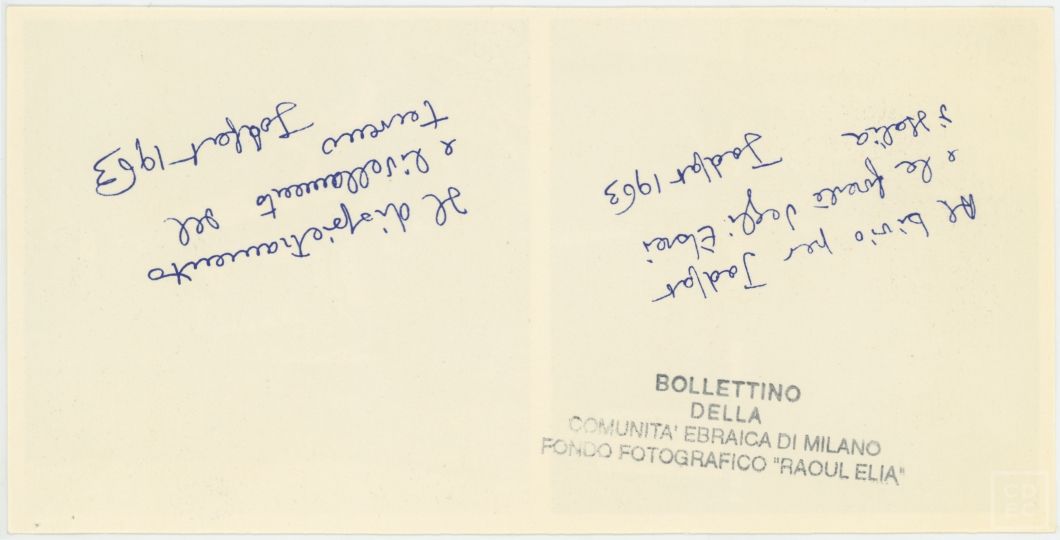 Il dispietramento
e livellamento del
terreno
Jodfat 1963
Al bivio per Jodfat
e le foreste degli Ebrei
d'Italia
Jodfat 1963
BOLLETTINO
DELLA
COMUNITA' EBRAICA DI MILANO
FONDO FOTOGRAFICO "RAOUL ELIA"
CD
EC